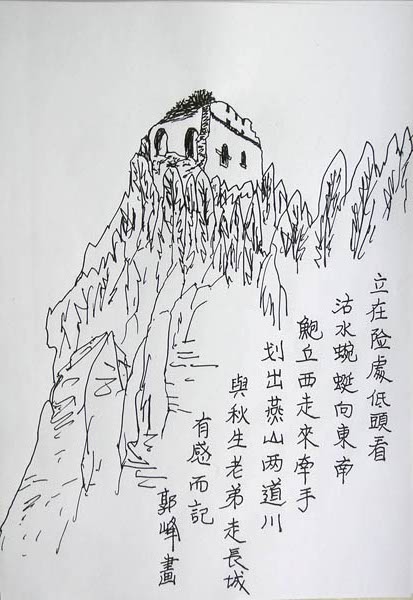 立在险處低頭看
沽水蜿蜒向東南
鮑丘西走來牽手
划出燕山两道川
與秋生老弟走長城
有感而記
郭峰畫